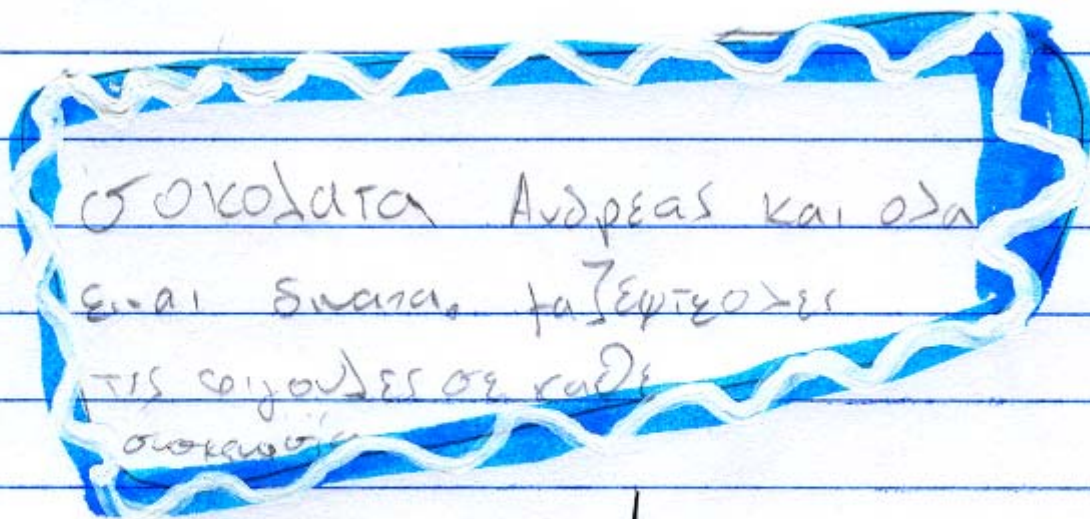 σοκολατα Ανδρεας και ολα
ειναι δινατα. μαζεψτε ολες
τις φιγουλες σε καθε
σισκεψασια